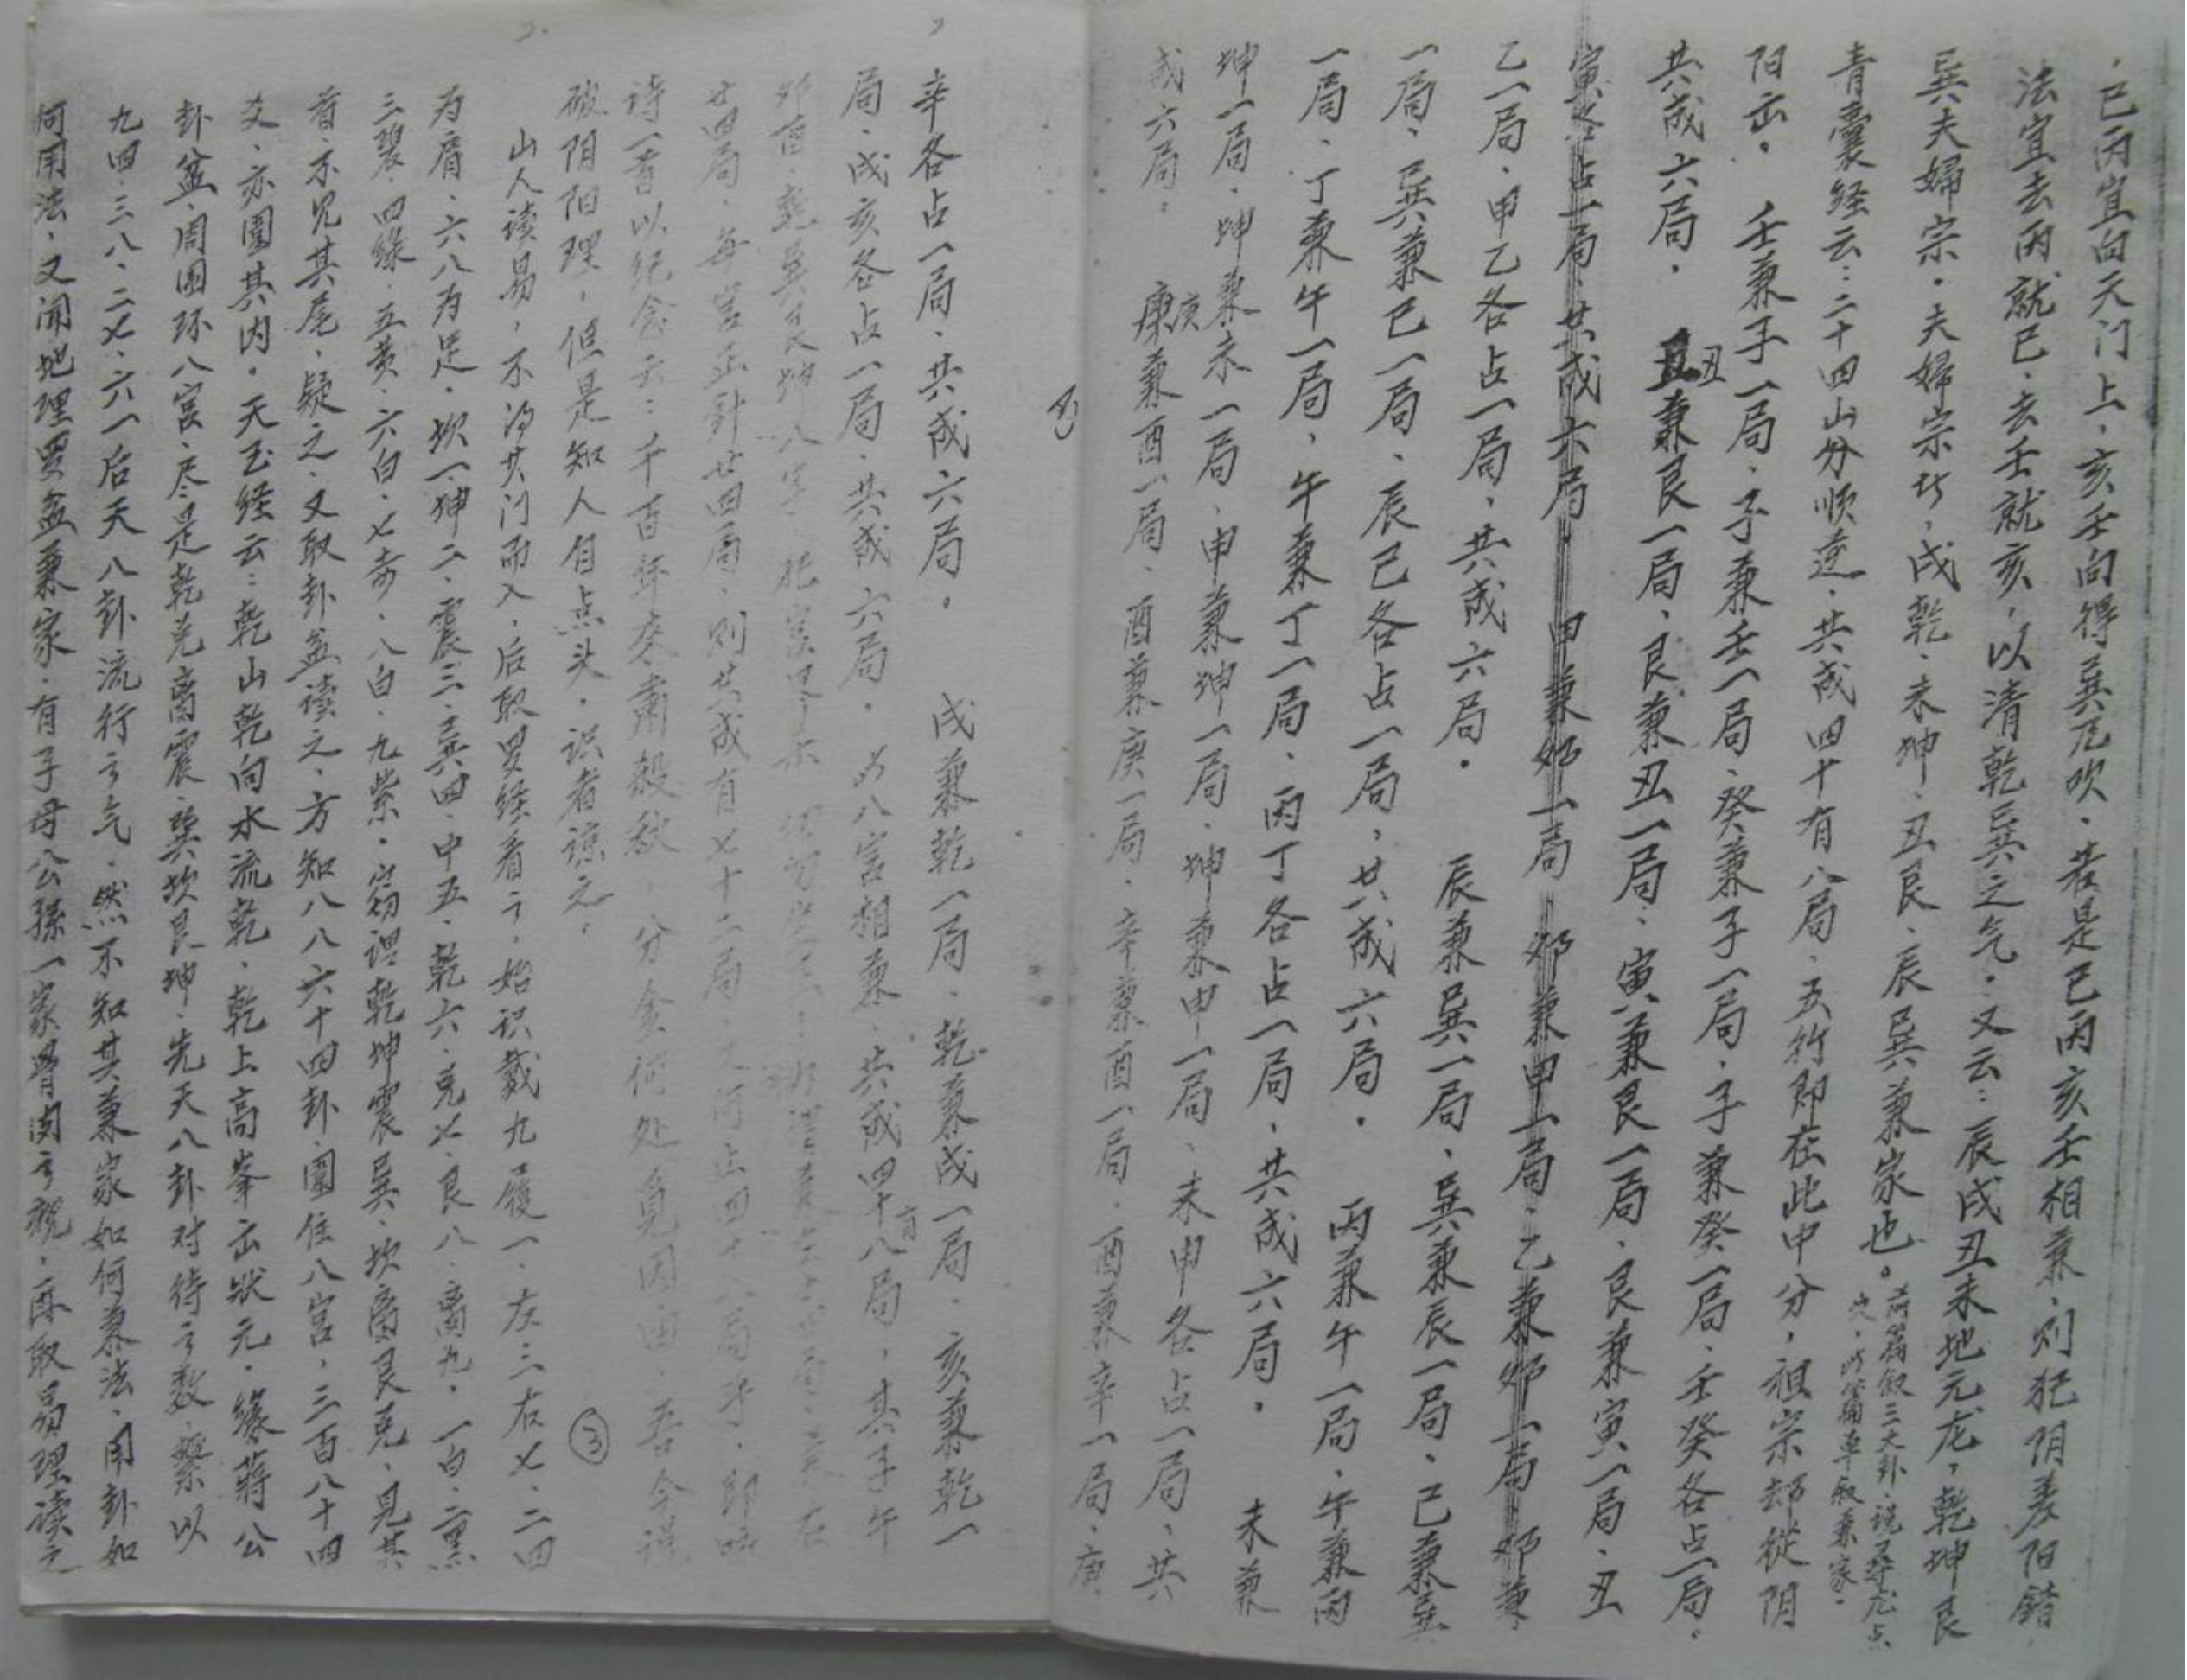 巳丙宜向天门上，亥壬向得巽风吹。若是巳丙亥壬相兼，则犯阴差阳错，
法宜去丙就巳，去壬就亥，以清乾巽之气。又云：辰戌丑未地元龙，乾坤艮
巽夫婦宗。夫婦宗者，戌乾、未坤、丑艮、辰巽兼家也。前篇叙三大卦，说尋龙点
穴，此篇单叙兼家。
青囊经云：二十四山分顺逆，共成四十有八局，五行即在此中分，祖宗却從阴
阳出。 壬兼子一局、子兼壬一局、癸兼子一局、子兼癸一局、壬癸各占一局。
共成六局。 丑兼艮一局、艮兼丑一局、寅兼艮一局、艮兼寅一局、丑
寅各占一局，共成六局。 甲兼夘一局 夘兼甲一局、乙兼夘一局 夘兼
乙一局、甲乙各占一局，共成六局。 辰兼巽一局、巽兼辰一局、巳兼巽
一局、巽兼巳一局、辰巳各占一局，共成六局。 丙兼午一局、午兼丙
一局、丁兼午一局，午兼丁一局、丙丁各占一局，共成六局。 未兼
坤一局、坤兼未一局、申兼坤一局、坤兼申一局、未申各占一局、共
成六局。 庚兼酉一局、酉兼庚一局、辛兼酉一局、酉兼辛一局、庚
辛各占一局、共成六局。 戌兼乾一局、乾兼戌一局、亥兼乾一
局、戌亥各占一局、共成六局。 此八宮相兼、共成四十有八局，其子午
夘酉、乾巽艮坤八字
廿四局、每宮正針廿四局、则共成有七十二局、又何止四十八局乎，即
诗一首以纪念云：千百年来肅殺秋，分金何处覓因由，吾今说
破阴阳理，但是知人自点头。识者谅之。
③
山人读易，不得其门而入，后取罗经看之，始识戴九履一，左三右七，二四
为肩，六八为足。坎一、坤二、震三、巽四、中五、乾六、兑七、艮八、离九。一白、二黑
三碧、四绿、五黄、六白、七赤、八白、九紫。窃谓乾坤震巽、坎离艮兑，見其
首，不见其尾，疑之、又取卦盆读之，方知八八六十四卦圍住八宮，三百八十四
爻，亦圍其内。天玉经云：乾山乾向水流乾，乾上高峯出狀元。緣蒋公
卦盆，周围环八宮、尽是乾兑离震、巽坎艮坤，先天八卦对待之数，繫以
九四、三八、二七、六一后天八卦流行之气，然不知其兼家如何兼法，用卦如
何用法，又闻地理罗盆兼家，有子母公孫一家骨肉之親，再取易理读之